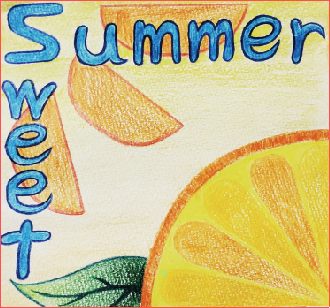 Summer
Sweet